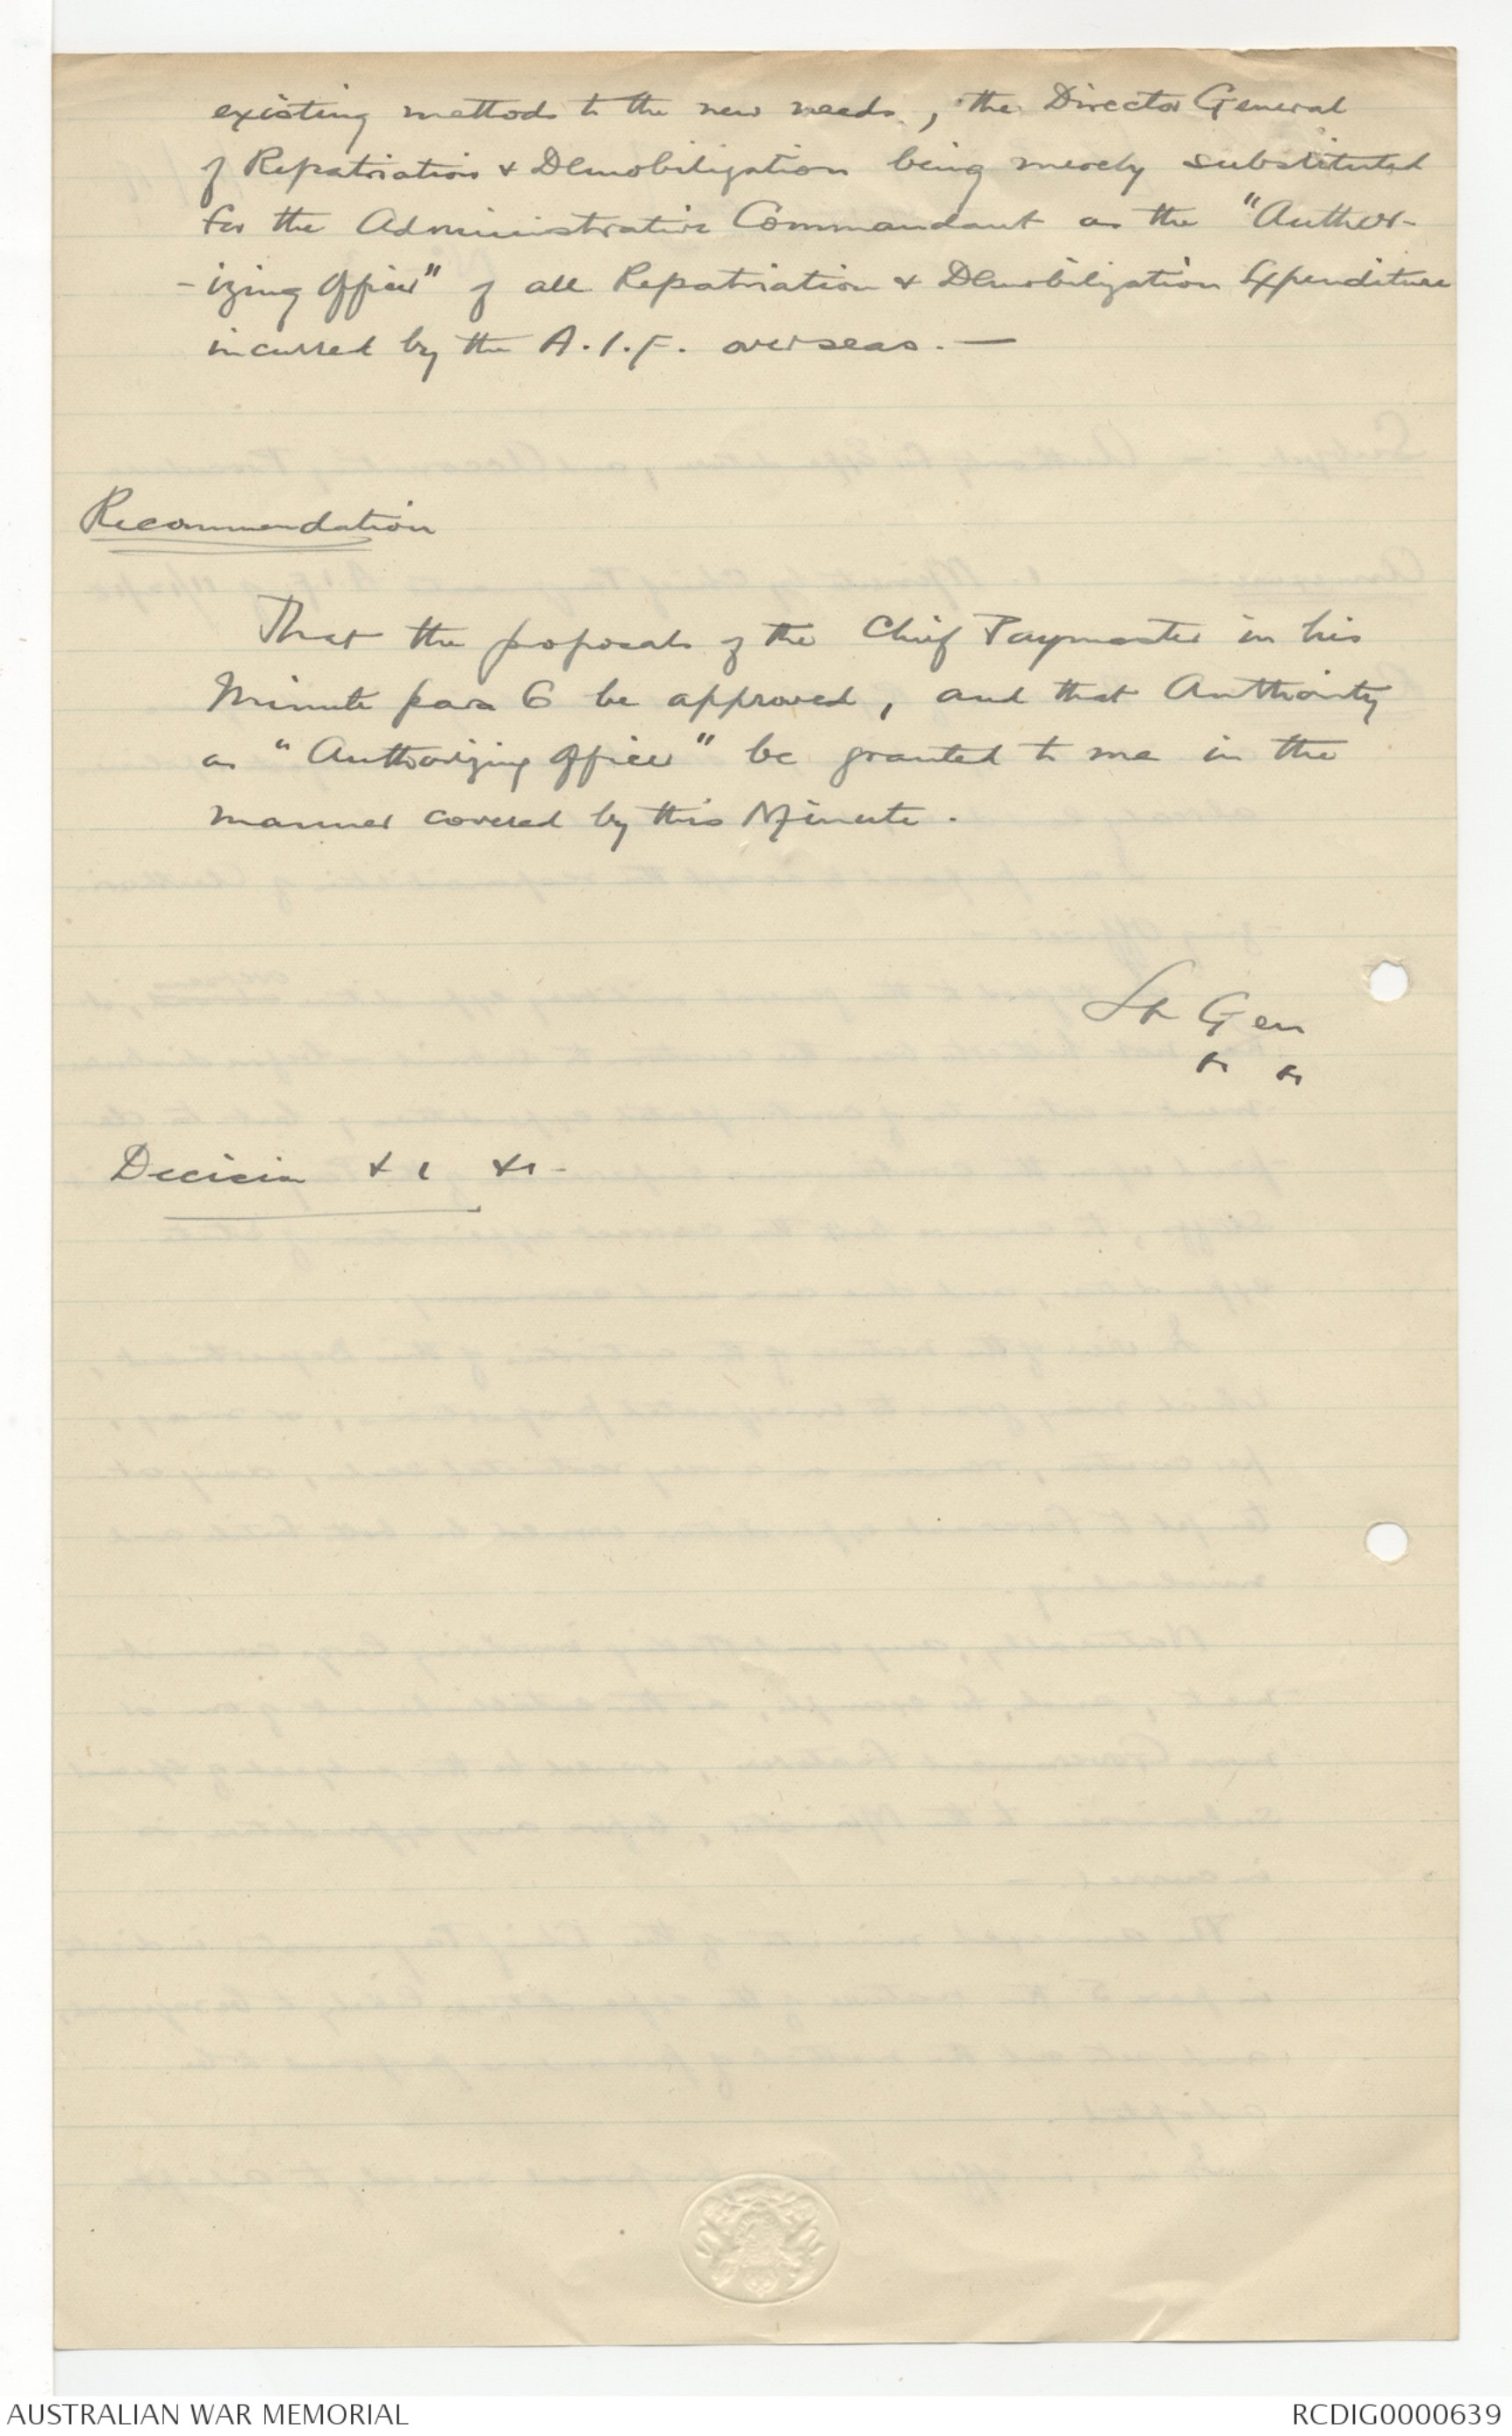 existing methods to the new needs, the Director General
of Repatriation & Demobilization being merely substituted
for the Administrative Commandant as the "Author-
-izing Officer" of all Repatriation & Demobilization Expenditure
incurred by the A.I.F. overseas. —
Recommendation
That the proposals of the Chief Paymaster in his
Minute para 6 be approved, and that Authority
as "Authorizing Officer" be granted to me in the
manner covered by this Minute.
Lt Gen
Decision &c &c
AUSTRALIAN WAR MEMORIAL
RCDIG0000639